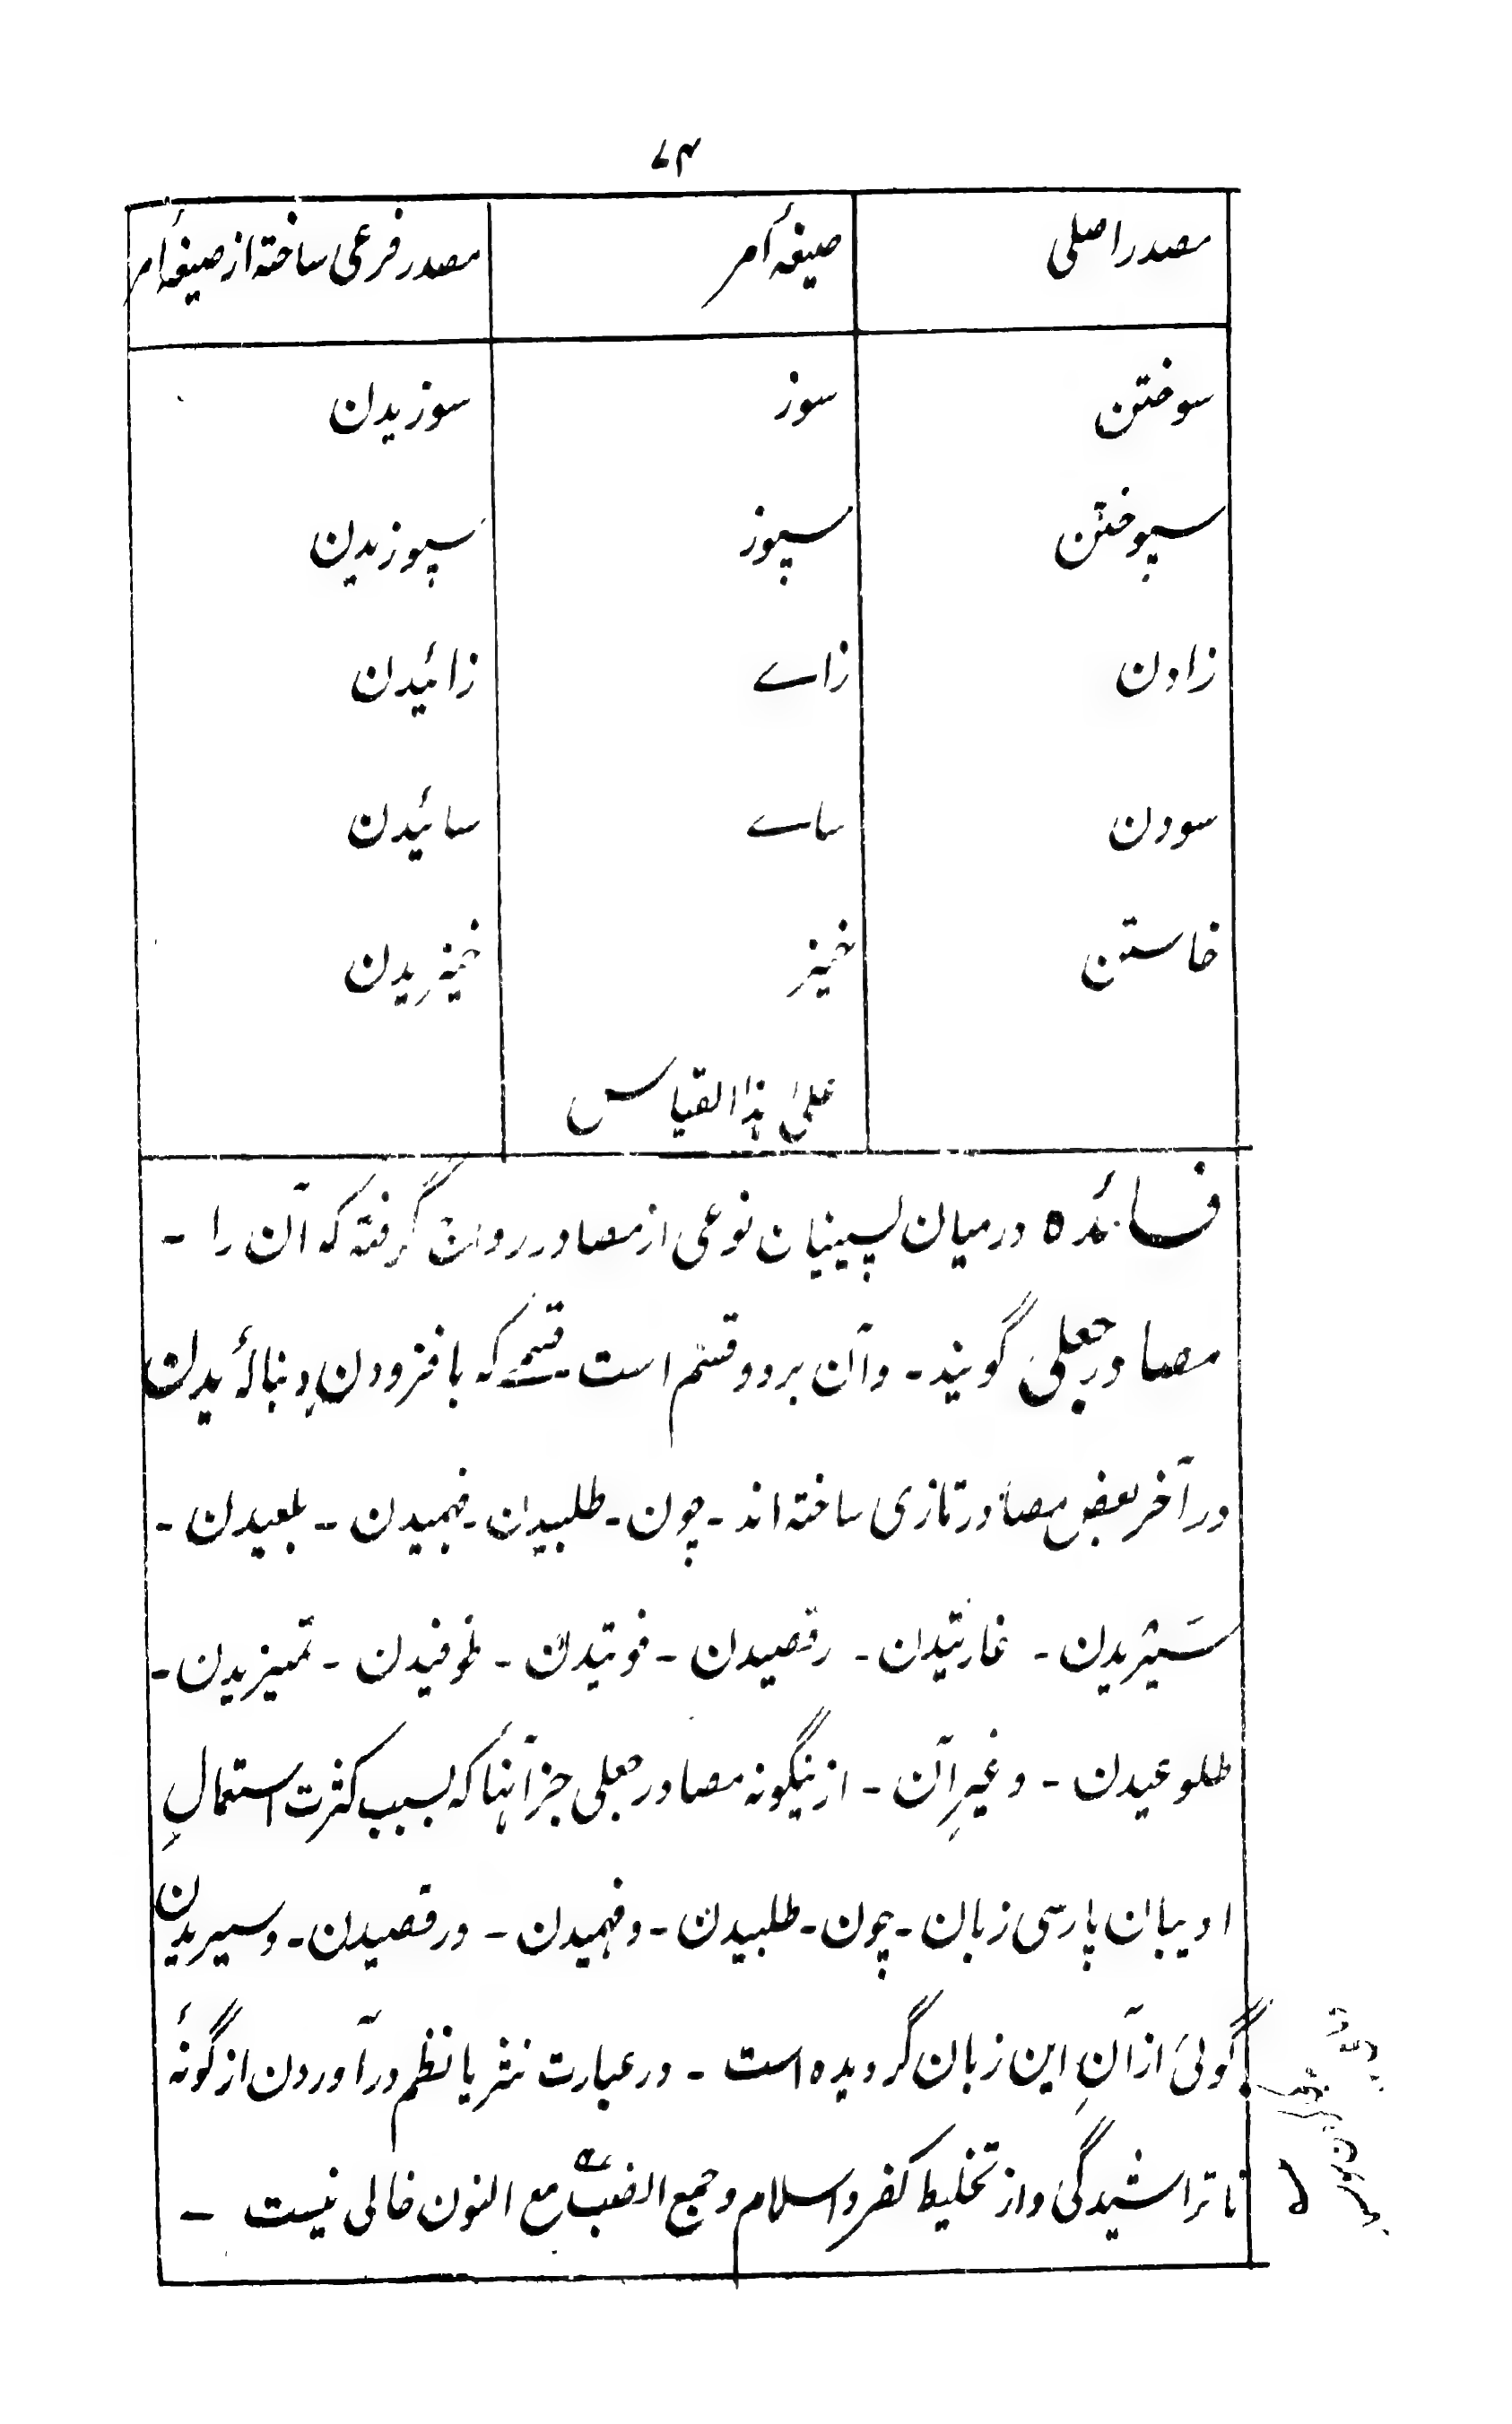 ۷۴
مصدر اصلی صیغۂ امر مصدر فرعی ساخته از صیغۂ امر
سوختن سوز سوزیدن
سپوختن سپوز سپوزیدن
زادن زاے زائیدن
سودن ساے سائیدن
خاستن خیز خیزیدن
علیٰ ہذا القیاس
فائدہ درمیان پسینیان نوعی از مصادر رواج گرفته که آن را -
مصادر جعلی گویند - و آن بر دو قسم است - قسمے که با فزودن دنبالۂ یدن
در آخر بعض مصادر تازی ساخته اند - چون - طلبیدن - فهمیدن - بلعیدن -
سَیریدن - غارتیدن - رقصیدن - فوتیدن - طوفیدن - تمیزیدن -
طلوعیدن - و غیرِ آن - ازینگونه مصادر جعلی جز آنها که بسبب کثرت استعمالِ
ادیبان پارسی زبان - چون - طلبیدن - و فهمیدن - و رقصیدن - و سیریدن
گوئی از آنِ این زبان گردیده است - در عبارت نثر یا نظم در آوردن از گونۂ
ناتراشیدگی و از تخلیط کفر و اسلام و جمع الضب مع النون خالی نیست -